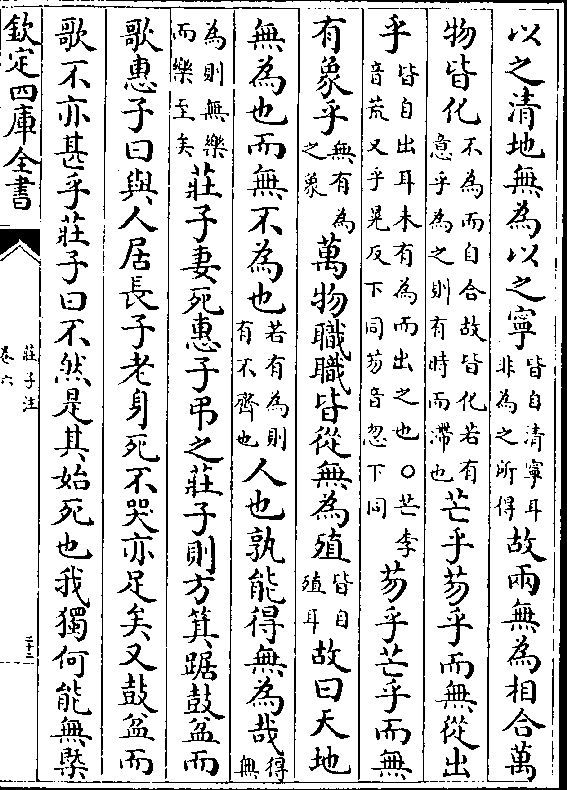 以之清地無為以之寧皆自清寧耳非為之所得故兩無為相合萬
物皆化不為而自合故皆化若有意乎為之則有時而滯也芒乎芴乎而無從出
乎皆自出耳未有為而出之也○芒李音荒又乎晃反下同芴音忽下同芴乎芒乎而無
有象乎無有為之象萬物職職皆從無為殖皆自殖耳故曰天地
無為也而無不為也若有為則有不齊也人也孰能得無為哉得無
為則無樂而樂至矣莊子妻死惠子弔之莊子則方箕踞鼓盆而
歌惠子曰與人居長子老身死不哭亦足矣又鼓盆而
歌不亦甚乎莊子曰不然是其始死也我獨何能無槩
欽定四庫全書
莊子注
卷六
二十三